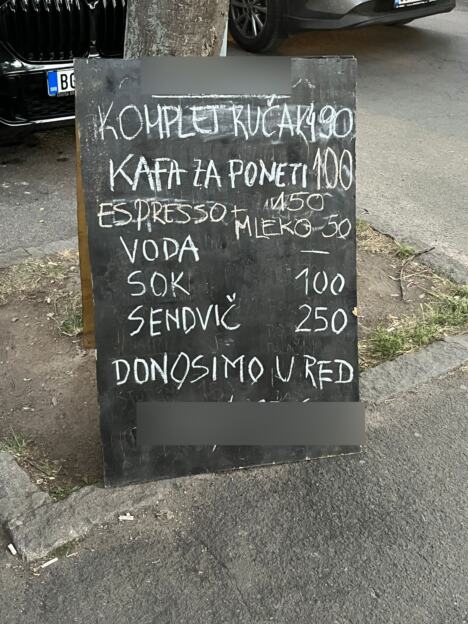 KOMPLET RUČAK 490
KAFA ZA PONETI 100
ESPRESSO 150
+ MLEKO 50
VODA —
SOK 100
SENDVIČ 250
DONOSIMO U RED
BG